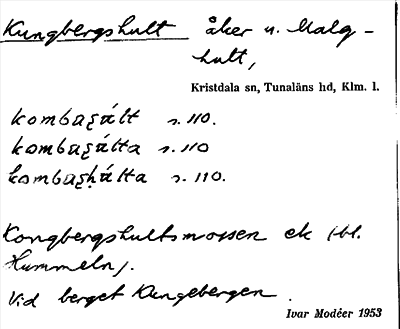 Kungbergshult åker u. Malg-
hult,
Kristdala sn, Tunaläns hd, Klm. l.
kombaʒált s. 110.
kombaʒálta s. 110
kombaʒhálta s. 110.
Kongbergshultsmossen ek (bl.
Hummeln).
Vid berget Kungebergen.
Ivar Modéer 1953